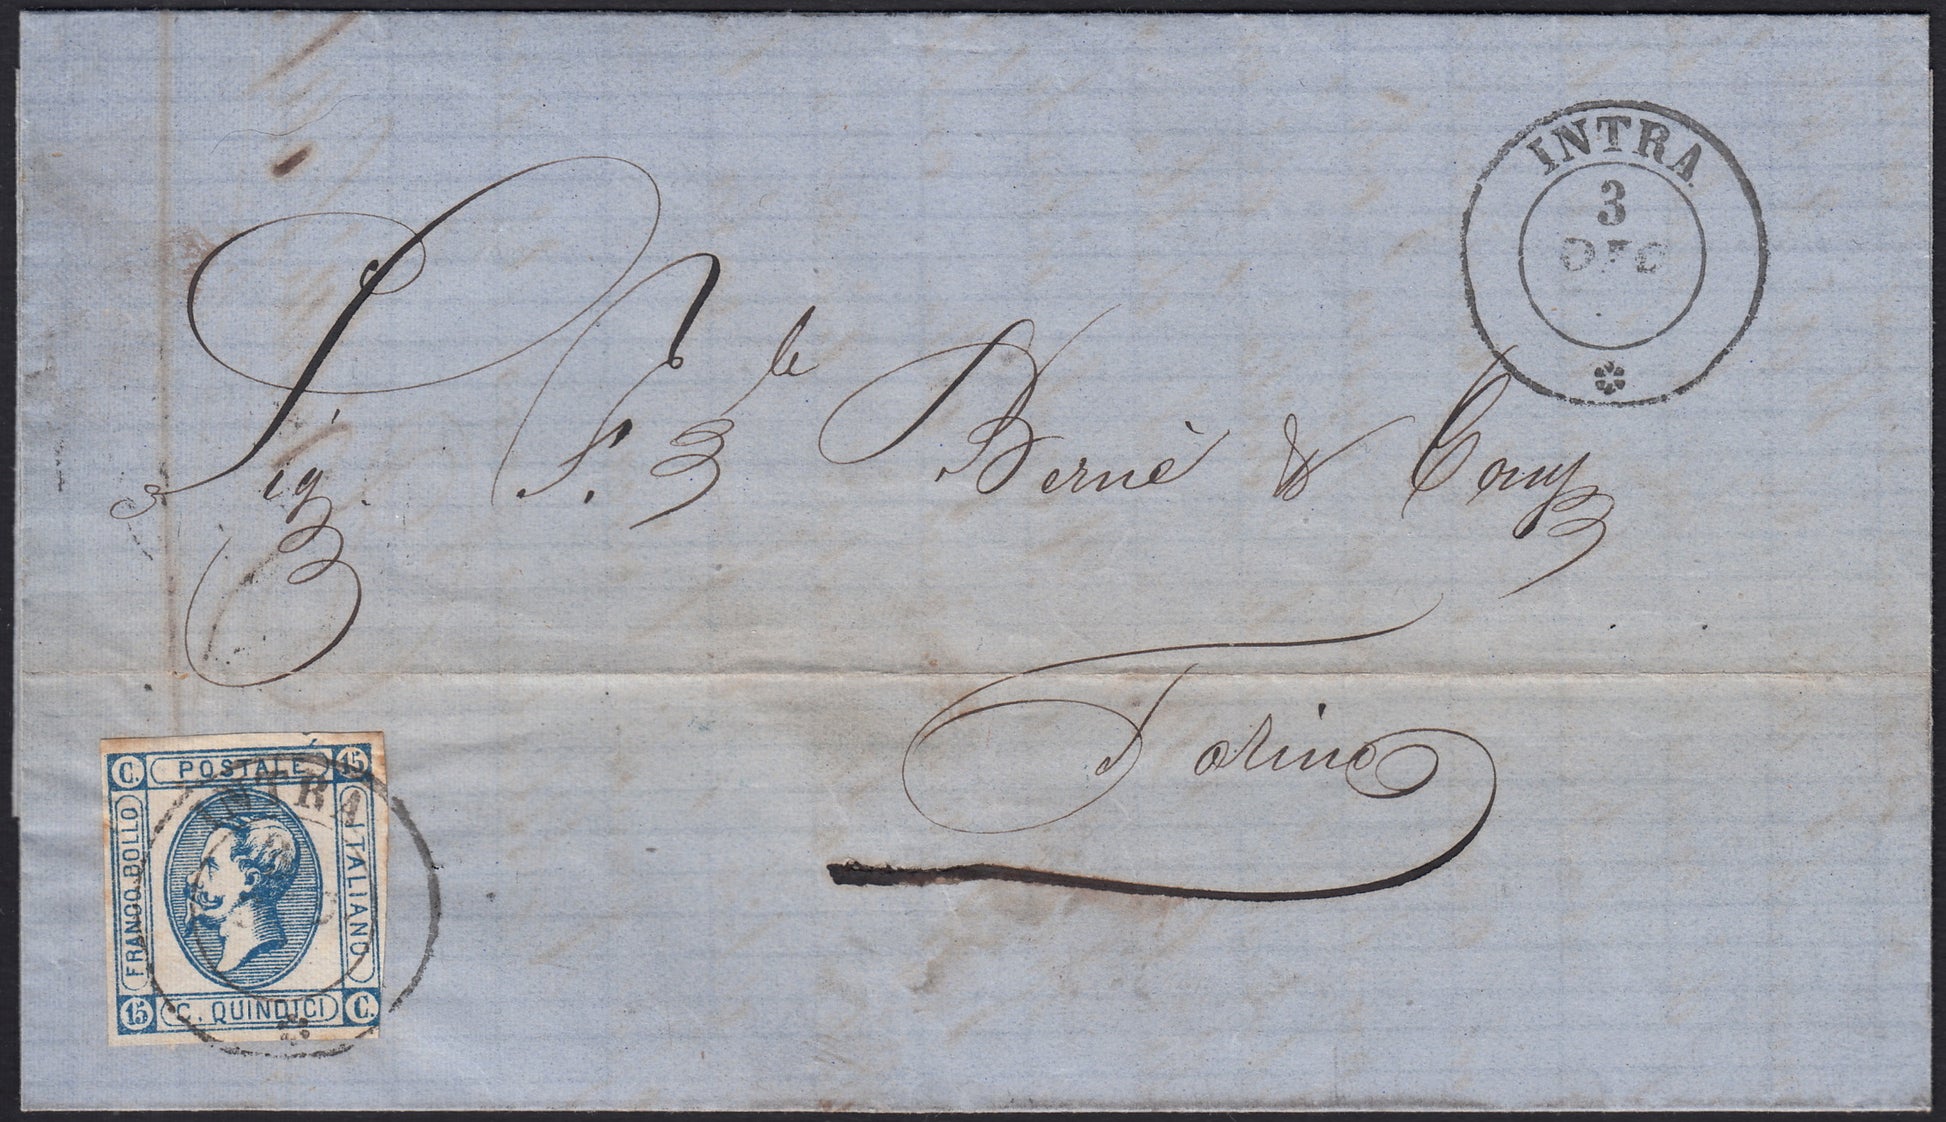 INTRA
3
DEC
Sig. F.lle Bernè & Comp
Torino
C. POSTALE 15
FRANCO BOLLO
ITALIANO
15 C. QUINDICI C.
INTRA